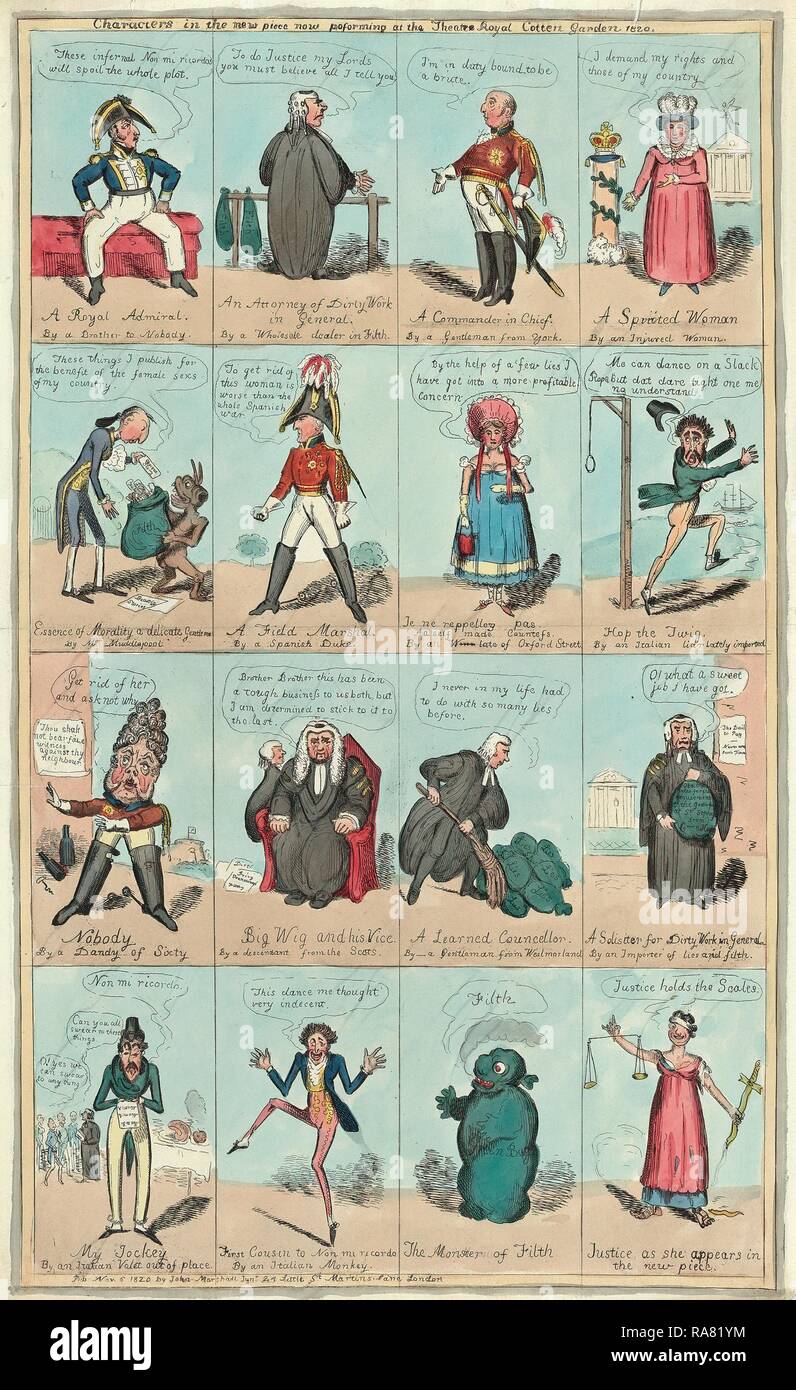 Characters in the new piece now poforming at the Theatre Royal Cotten Garden 1820.
These infernal Non mi ricordos
will spoil the whole plot.
A Royal Admiral.
By a Brother to Nobody.
To do Justice my Lords
you must believe all I tell you
An Attorney of Dirty Work
in General.
By a Wholesale dealer in Filth.
I'm in duty bound to be
a brute.
A Commander in Chief.
By a Gentleman from York.
I demand my rights and
those of my country
A Spirited Woman
By an Injured Woman.
These things I publish for
the benefit of the female sexs
of my country.
Filth
Essence of Morality a delicate Gentleman
By Mr Muddlepool
To get rid of
this woman is
worse than the
whole Spanish
war.
A Field Marshal.
By a Spanish Duke.
By the help of a few lies I
have got into a more profitable
Concern
Je ne reppellez pas
a self made Countefs.
By an late of Oxford Street
Me can dance on a Slack
Rope but dat dare tight one me
no understand
Hop the Twig.
By an Italian liar lately imported
Get rid of her
and ask not why
Thou shalt
not bear false
witness
against thy
Neighbour
Nobody
By a Dandy of Sixty
Brother Brother this has been
a tough businefs to us both, but
I am determined to stick to it to
the last.
Big Wig and his Vice.
By a descendant from the Scots.
I never in my life had
to do with so many lies
before.
A Learned Councellor.
By a Gentleman from Westmorland
O! what a sweet
job I have got.
The Devil
to Pay
A Solistter for Dirty Work in General
By an Importer of lies and filth.
Non mi ricordo.
Can you all
swear to these
things.
O! yes we
can swear
to any thing
My Jockey
By an Italian Valet out of place.
This dance me thought
very indecent.
First Cousin to Non mi ricordo
By an Italian Monkey.
Filth
Green Bag
The Monster of Filth
Justice holds the Scales.
Justice as she appears in
the new piece.
Pub Nov. 6 1820 by John Marshall Junr 24 Little St Martins Lane London
alamy
Image ID: RA81YM
www.alamy.com